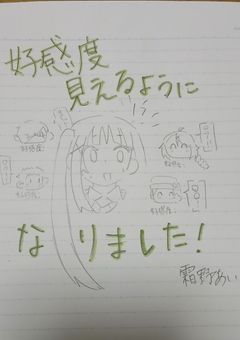 好感度
見えるように
好感度:
好感度:
好感度:
好感度:
なりました!
霜野あい